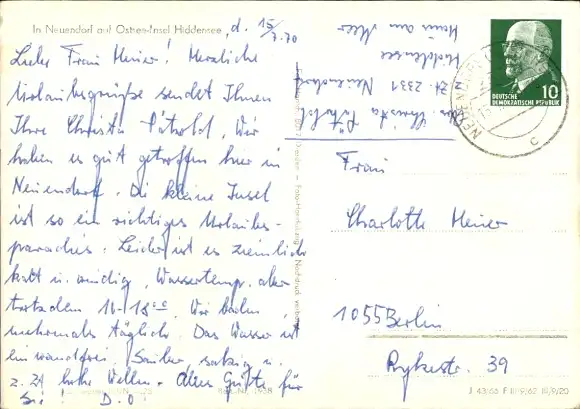 In Neuendorf auf Ostsee-Insel Hiddensee, d. 15/7.70
Liebe Frau Meier! Herzliche
Urlaubsgrüße sendet Ihnen
Ihre Christa Pätzold, Wir
haben es gut getroffen hier in
Neuendorf. Die kleine Insel
ist so ein richtiges Urlaubs-
paradies. Leider ist es ziemlich
kalt u. windig, Wassertemp. aber
trotzdem 16-18°. Wir baden
mehrmals täglich. Das Wasser ist
einwandfrei. Sauber, salzig u.
z. Zt hohe Wellen. Alles Gute für
Sie! D.O!
Christa Pätzold
z. Zt. 2331 Neuendorf
Hiddensee
Haus am Meer
10
DEUTSCHE
DEMOKRATISCHE REPUBLIK
NEUENDORF
c
Frau
Charlotte Meier
1055 Berlin
Rykestr. 39